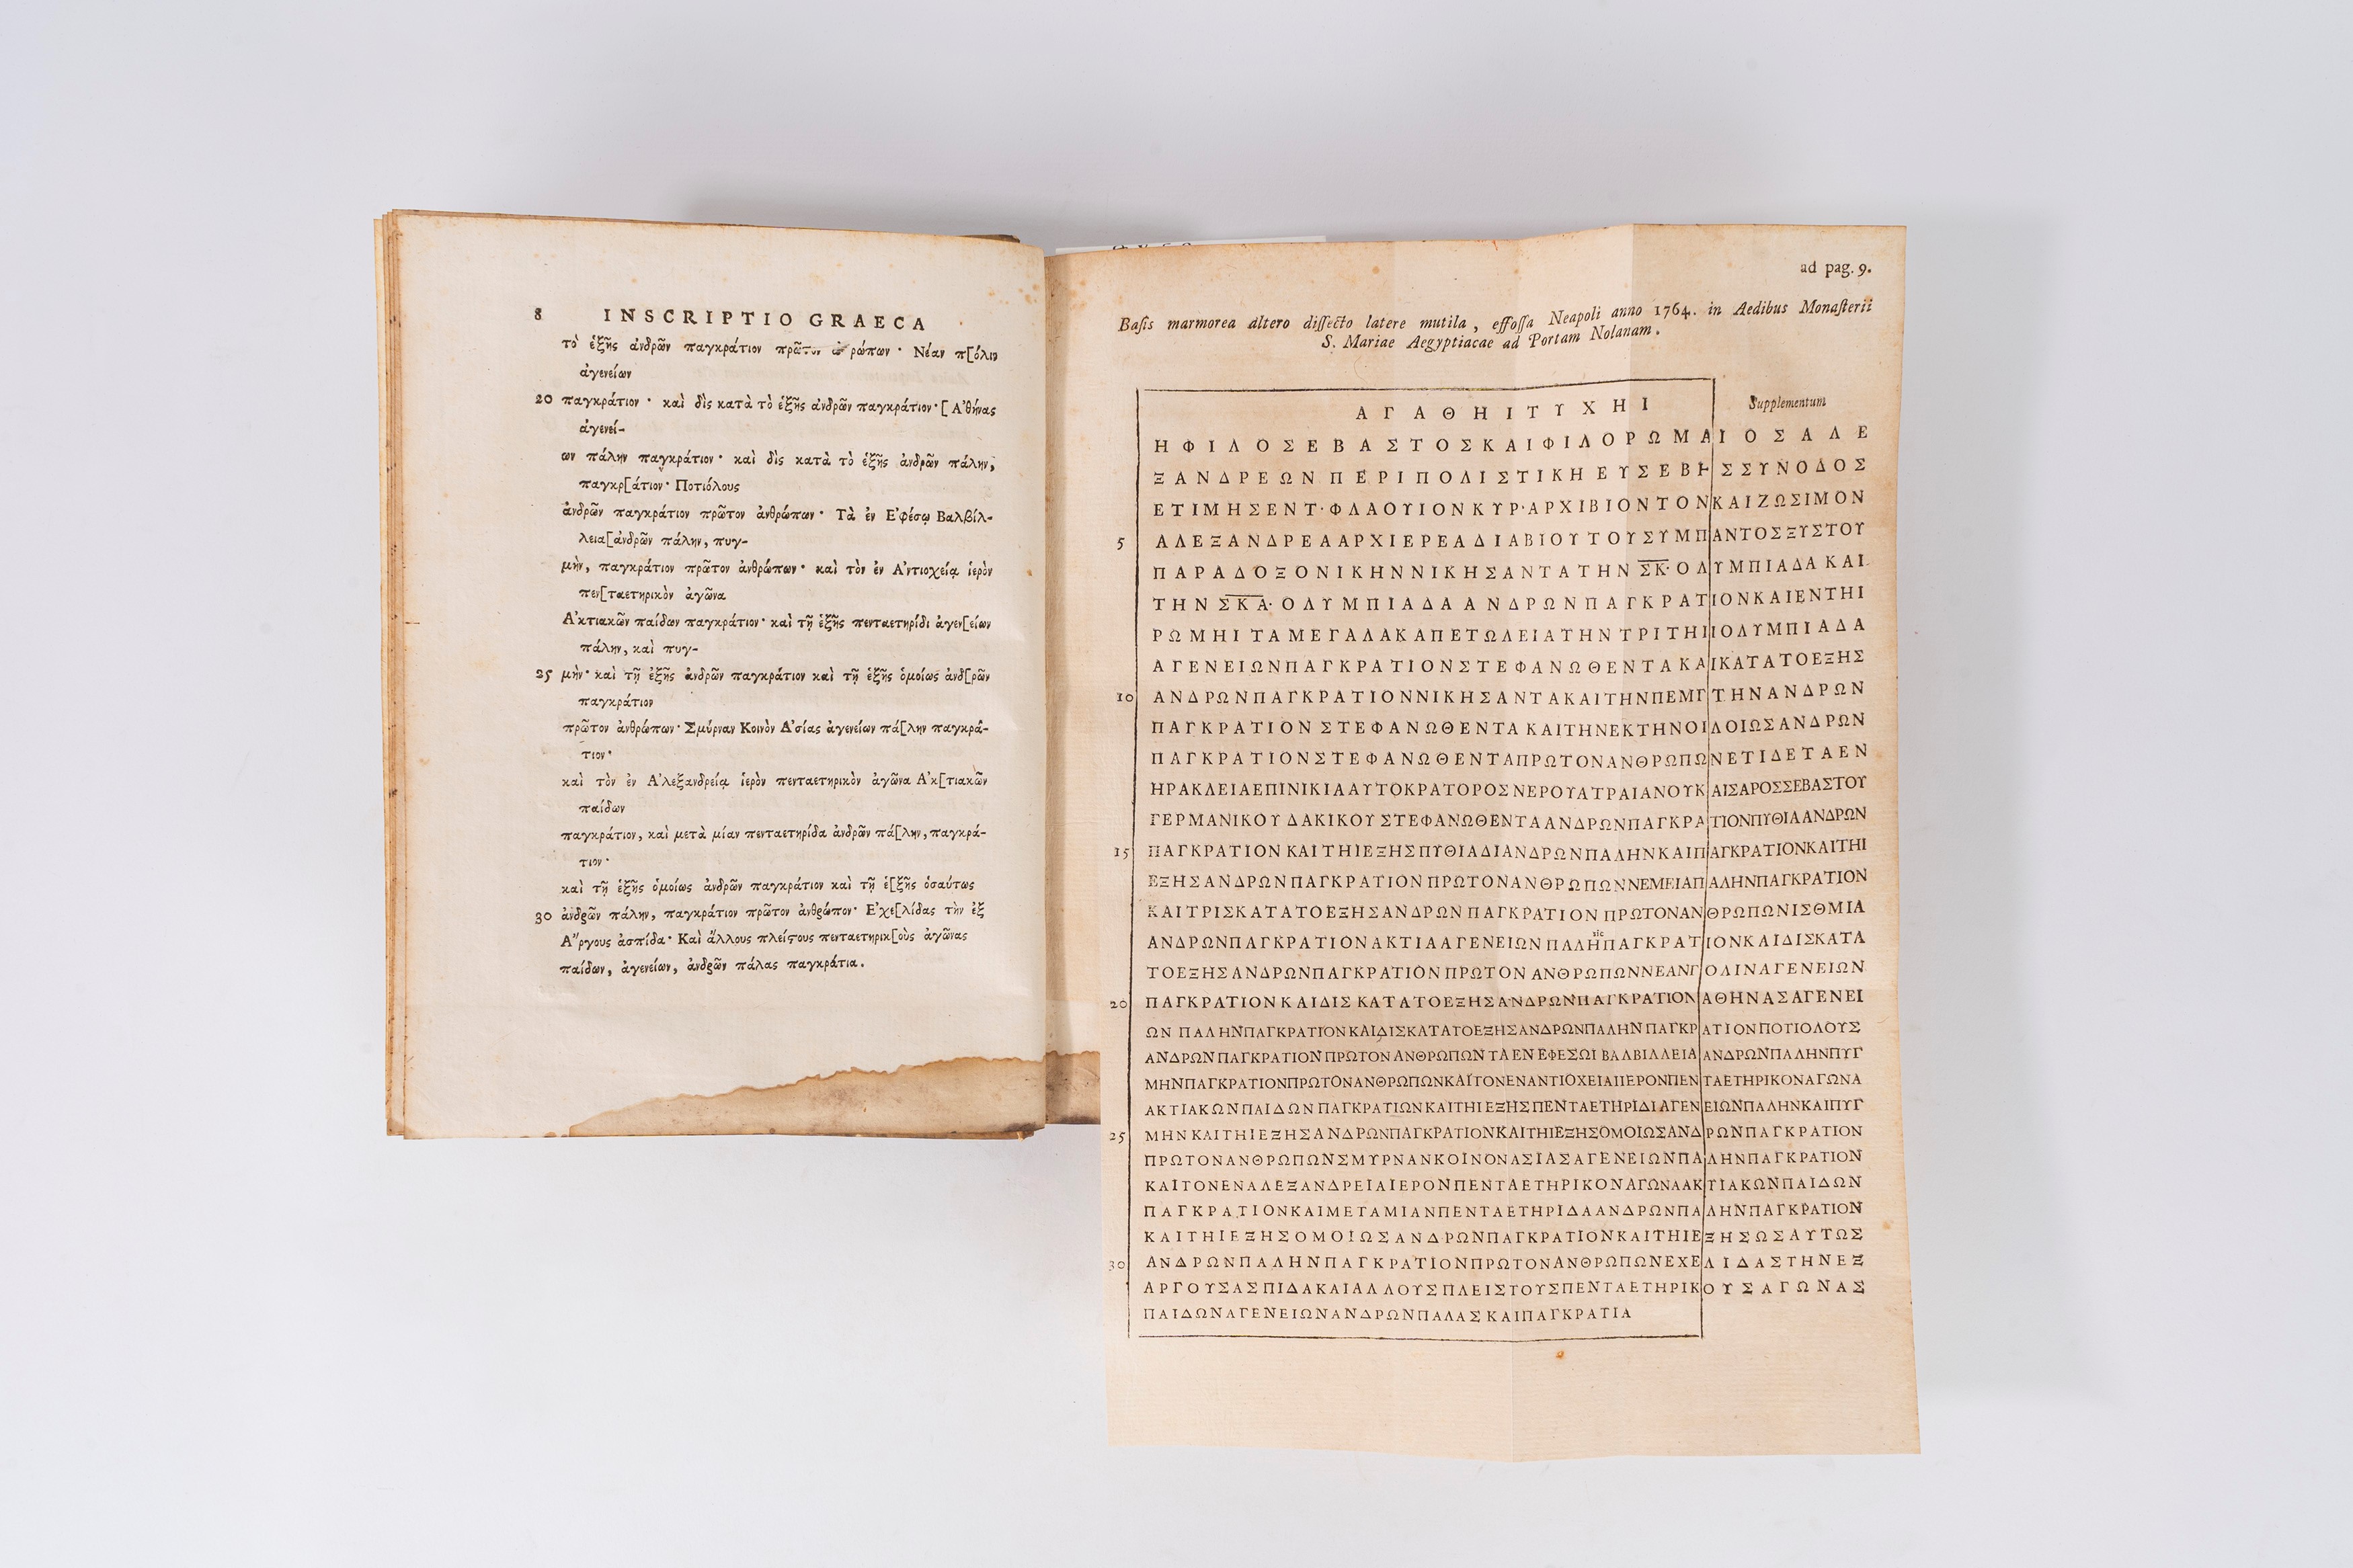 8 INSCRIPTIO GRAECA
τὸ ἑξῆς ἀνδρῶν παγκράτιον πρῶτον ρώπων · Νέαν π[όλιν
ἀγενείων
20 παγκράτιον · καὶ δὶς κατὰ τὸ ἑξῆς ἀνδρῶν παγκράτιον · [ Ἀθήνας
ἀγενεί-
ων πάλην παγκράτιον · καὶ δὶς κατὰ τὸ ἑξῆς ἀνδρῶν πάλην,
παγκρ[άτιον · Ποτιόλους
ἀνδρῶν παγκράτιον πρῶτον ἀνθρώπων · Τὰ ἐν Ἐφέσῳ Βαλβίλ-
λεια[ἀνδρῶν πάλην, πυγ-
μὴν, παγκράτιον πρῶτον ἀνθρώπων · καὶ τὸν ἐν Ἀντιοχείᾳ ἱερὸν
πεν[ταετηρικὸν ἀγῶνα
Ἀκτιακῶν παίδων παγκράτιον · καὶ τῇ ἑξῆς πενταετηρίδι ἀγεν[είων
πάλην, καὶ πυγ-
25 μὴν · καὶ τῇ ἑξῆς ἀνδρῶν παγκράτιον καὶ τῇ ἑξῆς ὁμοίως ἀνδ[ρῶν
παγκράτιον
πρῶτον ἀνθρώπων · Σμύρναν Κοινὸν Ἀσίας ἀγενείων πά[λην παγκρά-
τιον ·
καὶ τὸν ἐν Ἀλεξανδρείᾳ ἱερὸν πενταετηρικὸν ἀγῶνα Ἀκ[τιακῶν
παίδων
παγκράτιον, καὶ μετὰ μίαν πενταετηρίδα ἀνδρῶν πά[λην, παγκρά-
τιον ·
καὶ τῇ ἑξῆς ὁμοίως ἀνδρῶν παγκράτιον καὶ τῇ ἑ[ξῆς ὁσαύτως
30 ἀνδρῶν πάλην, παγκράτιον πρῶτον ἀνθρώπον · Ἐχε[λίδας τὴν ἐξ
Ἄργους ἀσπίδα · Καὶ ἄλλους πλείστους πενταετηρικ[οὺς ἀγῶνας
παίδων, ἀγενείων, ἀνδρῶν πάλας παγκράτια .
ad pag. 9.
Basis marmorea altero dissecto latere mutila , effossa Neapoli anno 1764. in Aedibus Monasterii
S. Mariae Aegyptiacae ad Portam Nolanam .
ΑΓΑΘΗΙΤΥΧΗΙ Supplementum
ΗΦΙΛΟΣΕΒΑΣΤΟΣΚΑΙΦΙΛΟΡΩΜΑΙΟΣΑΛΕ
ΞΑΝΔΡΕΩΝΠΕΡΙΠΟΛΙΣΤΙΚΗΕΥΣΕΒΗΣΣΥΝΟΔΟΣ
ΕΤΙΜΗΣΕΝΤ·ΦΛΑΟΥΙΟΝΚΥΡ·ΑΡΧΙΒΙΟΝΤΟΝΚΑΙΖΩΣΙΜΟΝ
5 ΑΛΕΞΑΝΔΡΕΑΑΡΧΙΕΡΕΑΔΙΑΒΙΟΥΤΟΥΣΥΜΠΑΝΤΟΣΞΥΣΤΟΥ
ΠΑΡΑΔΟΞΟΝΙΚΗΝΝΙΚΗΣΑΝΤΑΤΗΝΣΚ·ΟΛΥΜΠΙΑΔΑΚΑΙ
ΤΗΝΣΚΑ·ΟΛΥΜΠΙΑΔΑΑΝΔΡΩΝΠΑΓΚΡΑΤΙΟΝΚΑΙΕΝΤΗΙ
ΡΩΜΗΙΤΑΜΕΓΑΛΑΚΑΠΕΤΩΛΕΙΑΤΗΝΤΡΙΤΗΝΟΛΥΜΠΙΑΔΑ
ΑΓΕΝΕΙΩΝΠΑΓΚΡΑΤΙΟΝΣΤΕΦΑΝΩΘΕΝΤΑΚΑΙΚΑΤΑΤΟΕΞΗΣ
10 ΑΝΔΡΩΝΠΑΓΚΡΑΤΙΟΝΝΙΚΗΣΑΝΤΑΚΑΙΤΗΝΠΕΜΠΤΗΝΑΝΔΡΩΝ
ΠΑΓΚΡΑΤΙΟΝΣΤΕΦΑΝΩΘΕΝΤΑΚΑΙΤΗΝΕΚΤΗΝΟΜΟΙΩΣΑΝΔΡΩΝ
ΠΑΓΚΡΑΤΙΟΝΣΤΕΦΑΝΩΘΕΝΤΑΠΡΩΤΟΝΑΝΘΡΩΠΩΝΕΤΙΔΕΤΑΕΝ
ΗΡΑΚΛΕΙΑΕΠΙΝΙΚΙΑΑΥΤΟΚΡΑΤΟΡΟΣΝΕΡΟΥΑΤΡΑΙΑΝΟΥΚΑΙΣΑΡΟΣΣΕΒΑΣΤΟΥ
ΓΕΡΜΑΝΙΚΟΥΔΑΚΙΚΟΥΣΤΕΦΑΝΩΘΕΝΤΑΑΝΔΡΩΝΠΑΓΚΡΑΤΙΟΝΠΥΘΙΑΑΝΔΡΩΝ
15 ΠΑΓΚΡΑΤΙΟΝΚΑΙΤΗΙΕΞΗΣΠΥΘΙΑΔΙΑΝΔΡΩΝΠΑΛΗΝΚΑΙΠΑΓΚΡΑΤΙΟΝΚΑΙΤΗΙ
ΕΞΗΣΑΝΔΡΩΝΠΑΓΚΡΑΤΙΟΝΠΡΩΤΟΝΑΝΘΡΩΠΩΝΝΕΜΕΙΑΠΑΛΗΝΠΑΓΚΡΑΤΙΟΝ
ΚΑΙΤΡΙΣΚΑΤΑΤΟΕΞΗΣΑΝΔΡΩΝΠΑΓΚΡΑΤΙΟΝΠΡΩΤΟΝΑΝΘΡΩΠΩΝΙΣΘΜΙΑ
ΑΝΔΡΩΝΠΑΓΚΡΑΤΙΟΝΑΚΤΙΑΑΓΕΝΕΙΩΝΠΑΛΗΠΑΓΚΡΑΤΙΟΝΚΑΙΔΙΣΚΑΤΑ
ΤΟΕΞΗΣΑΝΔΡΩΝΠΑΓΚΡΑΤΙΟΝΠΡΩΤΟΝΑΝΘΡΩΠΩΝΝΕΑΝΠΟΛΙΝΑΓΕΝΕΙΩΝ
20 ΠΑΓΚΡΑΤΙΟΝΚΑΙΔΙΣΚΑΤΑΤΟΕΞΗΣΑΝΔΡΩΝΠΑΓΚΡΑΤΙΟΝΑΘΗΝΑΣΑΓΕΝΕΙ
ΩΝΠΑΛΗΝΠΑΓΚΡΑΤΙΟΝΚΑΙΔΙΣΚΑΤΑΤΟΕΞΗΣΑΝΔΡΩΝΠΑΛΗΝΠΑΓΚΡΑΤΙΟΝΠΟΤΙΟΛΟΥΣ
ΑΝΔΡΩΝΠΑΓΚΡΑΤΙΟΝΠΡΩΤΟΝΑΝΘΡΩΠΩΝΤΑΕΝΕΦΕΣΩΙΒΑΛΒΙΛΛΕΙΑΑΝΔΡΩΝΠΑΛΗΝΠΥΓ
ΜΗΝΠΑΓΚΡΑΤΙΟΝΠΡΩΤΟΝΑΝΘΡΩΠΩΝΚΑΙΤΟΝΕΝΑΝΤΙΟΧΕΙΑΙΙΕΡΟΝΠΕΝΤΑΕΤΗΡΙΚΟΝΑΓΩΝΑ
ΑΚΤΙΑΚΩΝΠΑΙΔΩΝΠΑΓΚΡΑΤΙΩΝΚΑΙΤΗΙΕΞΗΣΠΕΝΤΑΕΤΗΡΙΔΙΑΓΕΝΕΙΩΝΠΑΛΗΝΚΑΙΠΥΓ
25 ΜΗΝΚΑΙΤΗΙΕΞΗΣΑΝΔΡΩΝΠΑΓΚΡΑΤΙΟΝΚΑΙΤΗΙΕΞΗΣΟΜΟΙΩΣΑΝΔΡΩΝΠΑΓΚΡΑΤΙΟΝ
ΠΡΩΤΟΝΑΝΘΡΩΠΩΝΣΜΥΡΝΑΝΚΟΙΝΟΝΑΣΙΑΣΑΓΕΝΕΙΩΝΠΑΛΗΝΠΑΓΚΡΑΤΙΟΝ
ΚΑΙΤΟΝΕΝΑΛΕΞΑΝΔΡΕΙΑΙΕΡΟΝΠΕΝΤΑΕΤΗΡΙΚΟΝΑΓΩΝΑΑΚΤΙΑΚΩΝΠΑΙΔΩΝ
ΠΑΓΚΡΑΤΙΟΝΚΑΙΜΕΤΑΜΙΑΝΠΕΝΤΑΕΤΗΡΙΔΑΑΝΔΡΩΝΠΑΛΗΝΠΑΓΚΡΑΤΙΟΝ
ΚΑΙΤΗΙΕΞΗΣΟΜΟΙΩΣΑΝΔΡΩΝΠΑΓΚΡΑΤΙΟΝΚΑΙΤΗΙΕΞΗΣΩΣΑΥΤΩΣ
30 ΑΝΔΡΩΝΠΑΛΗΝΠΑΓΚΡΑΤΙΟΝΠΡΩΤΟΝΑΝΘΡΩΠΩΝΕΧΕΛΙΔΑΣΤΗΝΕΞ
ΑΡΓΟΥΣΑΣΠΙΔΑΚΑΙΑΛΛΟΥΣΠΛΕΙΣΤΟΥΣΠΕΝΤΑΕΤΗΡΙΚΟΥΣΑΓΩΝΑΣ
ΠΑΙΔΩΝΑΓΕΝΕΙΩΝΑΝΔΡΩΝΠΑΛΑΣΚΑΙΠΑΓΚΡΑΤΙΑ